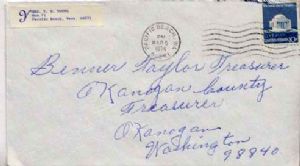 Box 71
Pacific Beach, Wash. 98571
PACIFIC BEACH, WA
PM
MAR 5
1974
10c
Benner Taylor Treasurer
OKanogan County
Treasurer
OKanogan
Washington
98840